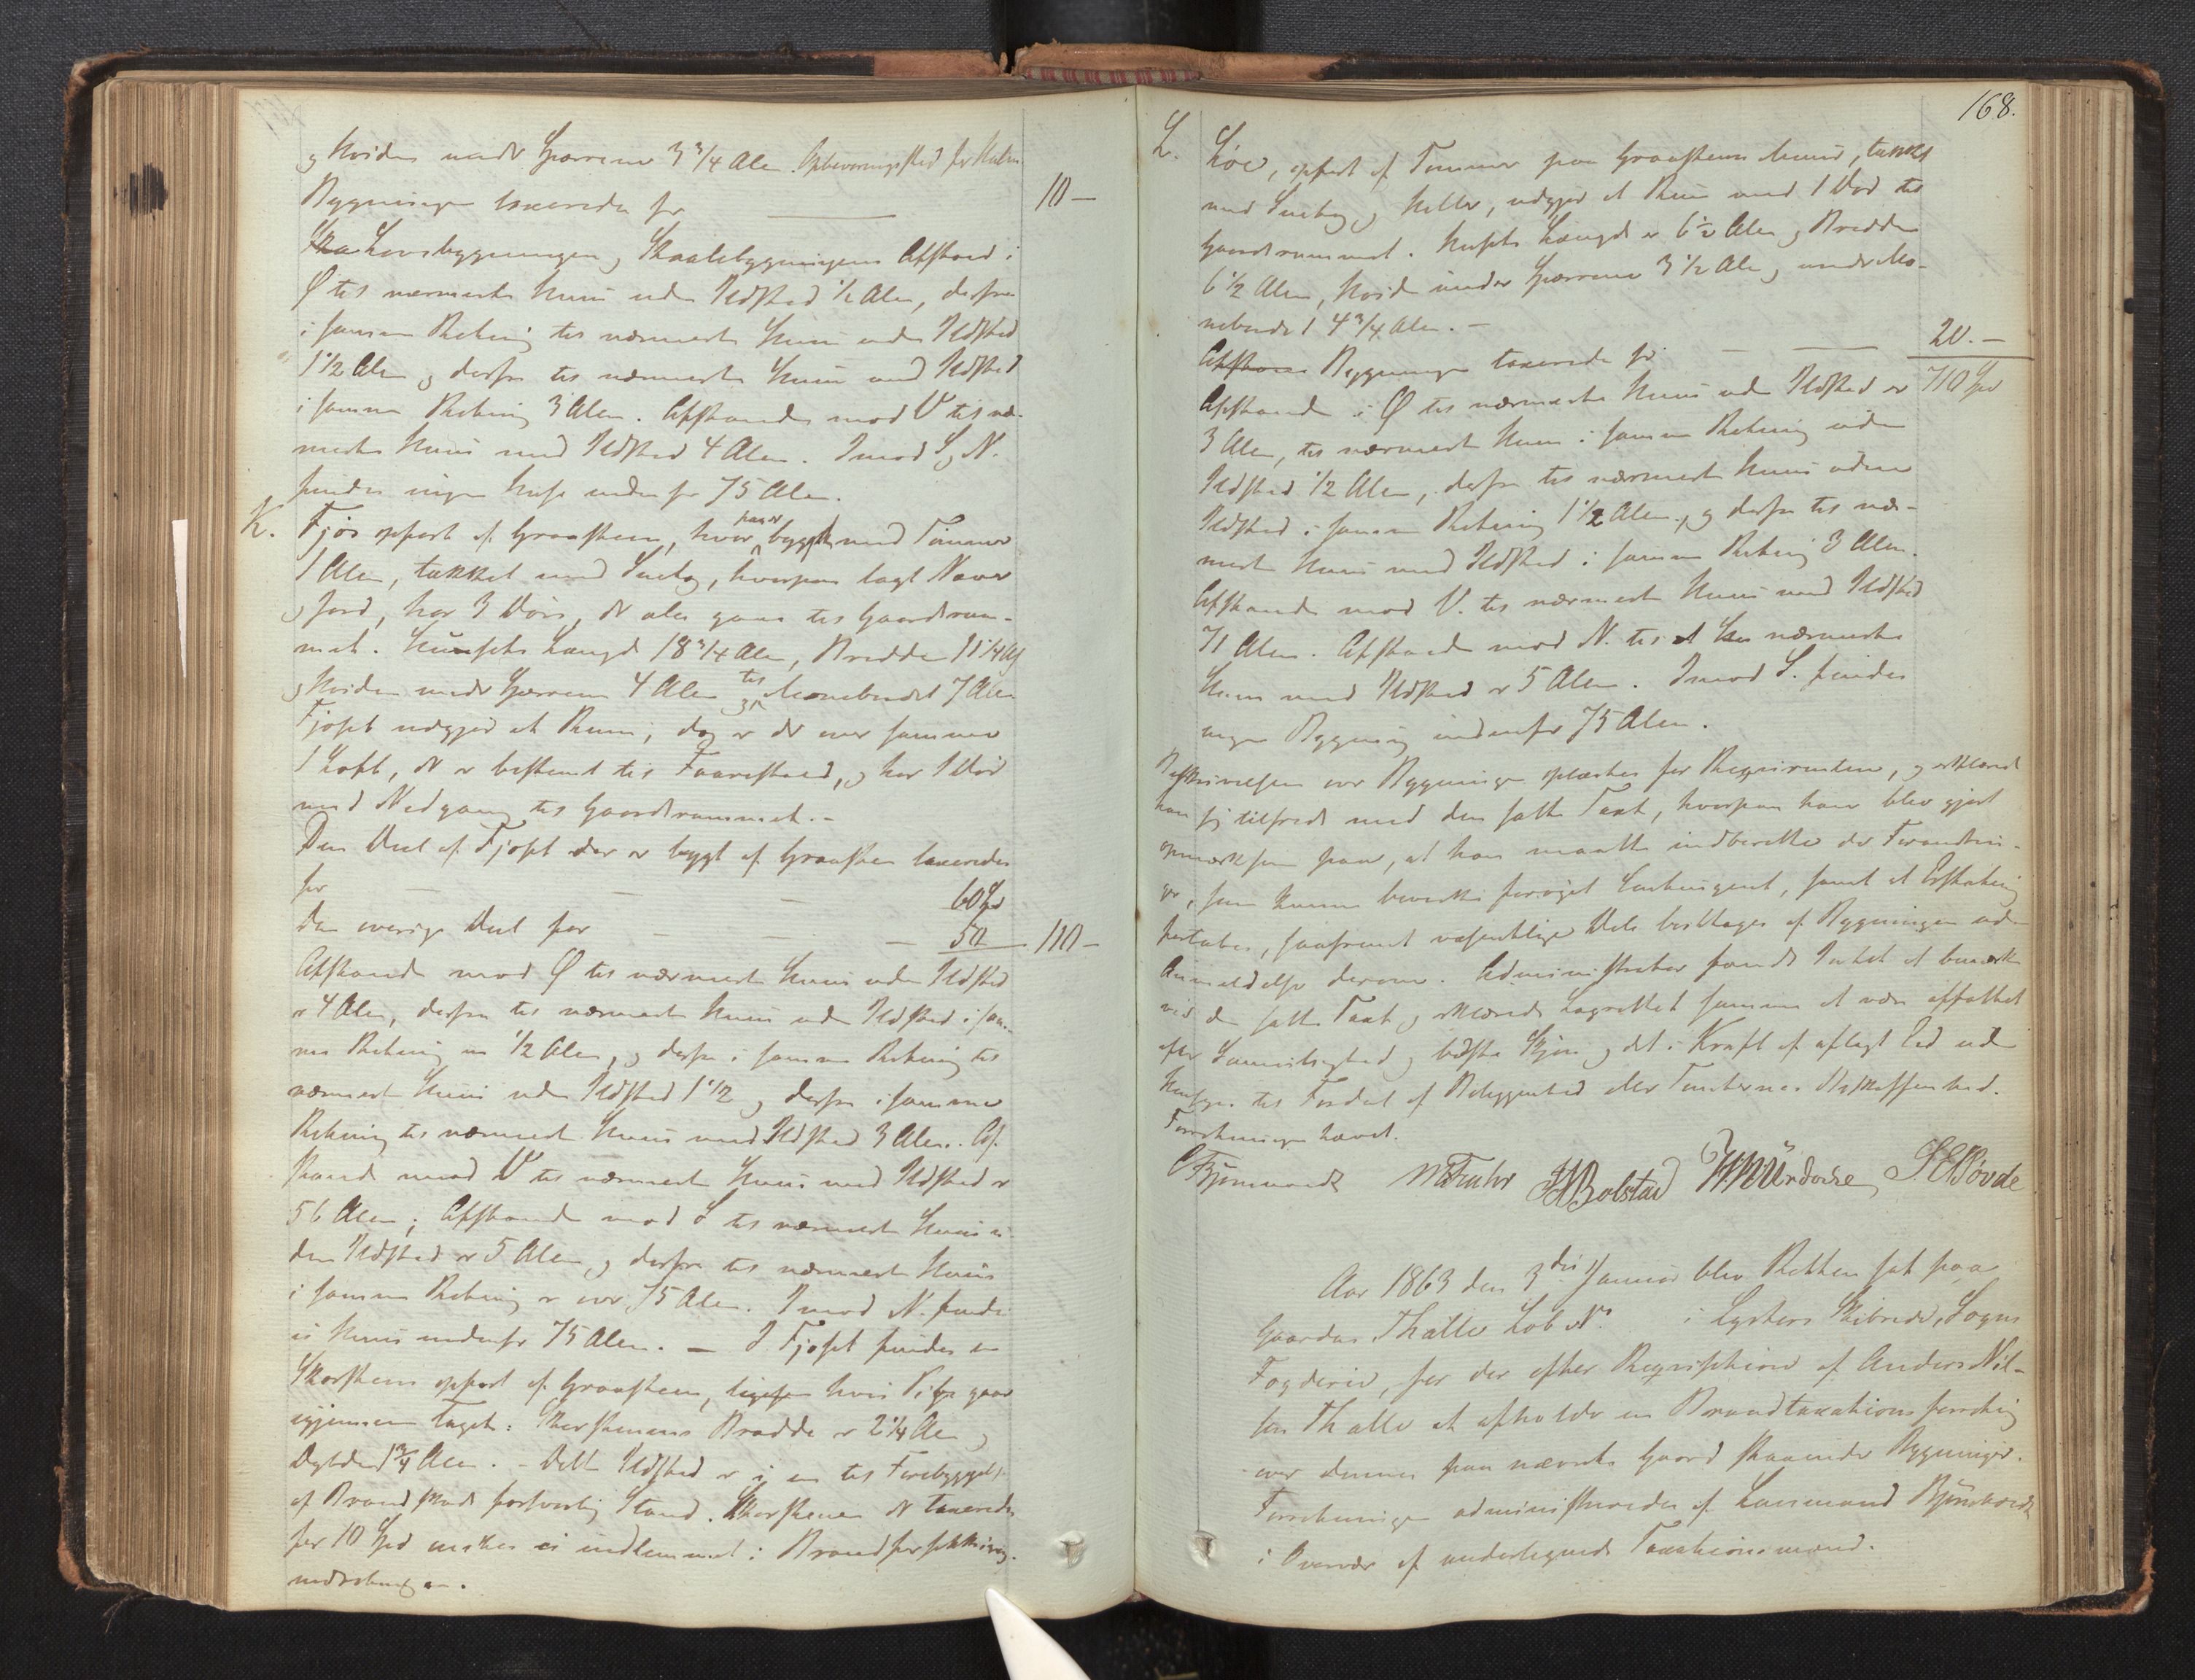 og Høiden under Sperrerne 3 3/4 Alen. Opbevaringssted for Halm
Bygningen taxeredes for — 10 —
Fra Lovebygningen og Skaalebygningens Afstand i
Ø til nærmeste Huus uden Ildsted 1/2 Alen, derfra
i samme Retning til nærmeste Huus uden Ildsted
1 1/2 Alen og derfra til nærmeste Huus med Ildsted
i samme Retning 3 Alen. Afstanden mod V til nær-
meste Huus med Ildsted 4 Alen. Imod S og N.
findes ingen Huse indenfor 75 Alen.
K. Fjøs opført af Graasteen, hvorpaa er bygget med Tømmer
1 Alen, tækket med Suetag, hvorpaa lagt Næver
og Jord, har 3 Døre, der alle gaae til Gaardsrum-
met. Huusets Længde 18 3/4 Alen, Bredde 11 1/4 Al
og Høiden under Sperrerne 4 Alen og til Mønebaandet 7 Alen
Fjøset udgjør et Rum, dog er der over samme
1 Loft, der er bestemt til Faarestald, og har 1 Dør
med Nedgang til Gaardsrummet. -
Den Deel af Fjøset der er bygt af Graasteen taxeredes
for — — — 60 Spd
den øvrige Deel for — — — 50 — 110 —
Afstanden mod Ø til nærmeste Huus uden Ildsted
er 4 Alen, derfra til nærmeste Huus uden Ildsted i sam-
me Retning er 1/2 Alen, og derfra i samme Retning til
nærmeste Huus uden Ildsted 1 1/2 og derfra i samme
Retning til nærmeste Huus med Ildsted 3 Alen. Af-
standen mod V til nærmeste Huus med Ildsted er
56 Alen; Afstanden mod S til nærmeste Huus u-
den Ildsted er 5 Alen, og derfra til nærmeste Huus
i samme Retning er over 75 Alen. Imod N. findes
ei Huus indenfor 75 Alen. — I Fjøset findes en
Skorsteen opført af Graasteen, hvis Pibe gaar
igjennem Taget: Skorstenens Bredde er 2 1/4 Alen og
Dybden 1 3/4 Alen. - Dette Ildsted er i en til Forebyggelse
af Brandskade forsvarlig Stand. Skorstenen der taxeredes
for 10 Spd ønskes ei indlemmet i Brandforsikrings-
indretningen.
168.
L. Løe, opført af Tømmer paa Graasteens Muur, tækket
med Suetag og Heller, udgjør et Rum med 1 Dør til
Gaardsrummet. Husets Længde er 6 1/2 Alen og Bredden
6 1/2 Alen, Høide under Sperrerne 3 1/2 Alen og under Mø-
nebaandet 4 3/4 Alen. -
Afstan Bygningen taxeredes for — — 20. —
Afstanden i Ø til nærmeste Huus uden Ildsted er 710 Spd
3 Alen, til nærmeste Huus i samme Retning uden
Ildsted 1/2 Alen, derfra til nærmeste Huus uden
Ildsted i samme Retning 1 1/2 Alen, og derfra til nær-
meste Huus med Ildsted i samme Retning 3 Alen.
Afstanden mod V. til nærmeste Huus med Ildsted
71 Alen. Afstanden mod N. til nærmeste
Huus med Ildsted er 5 Alen. Imod S. findes
ingen Bygning indenfor 75 Alen.
Beskrivelsen over Bygningen oplæstes for Requirenten, og erklærede
han sig tilfreds med den satte Taxt, hvorpaa han blev gjort
opmærksom paa, at han maatte indberette de Forandrin-
ger, som kunne bevirke forøget Contingent, samt at Erstatning
fortabes, saafremt væsentlige Dele borttages af Bygningen uden
Anmeldelse derom. Administrator fandt Intet at bemærke
ved den satte Taxt og erklærede Lagrettet samme at være affattet
efter Samvittighed og bedste Skjøn og det i Kraft af aflagt Eed uden
Hensyn til Fordeel af Beliggenhed eller Tomternes Beskaffenhed.
Forretningen hævet.
Bjørnaraae M Fuhr Bolstad Mürdorse Døvde
Aar 1863 den 3die Januar blev Retten sat paa
Gaarden Thalle Løb No i Lysters Skibrede, Sogns
Fogderie, for der efter Requisition af Anders Nil-
sen Thalle at afholde en Brandtaxationsforretning
over dennes paa nævnte Gaard staaende Bygninger.
Forretningen administreredes af Lensmand
i Overvær af undertegnede Taxationsmænd.